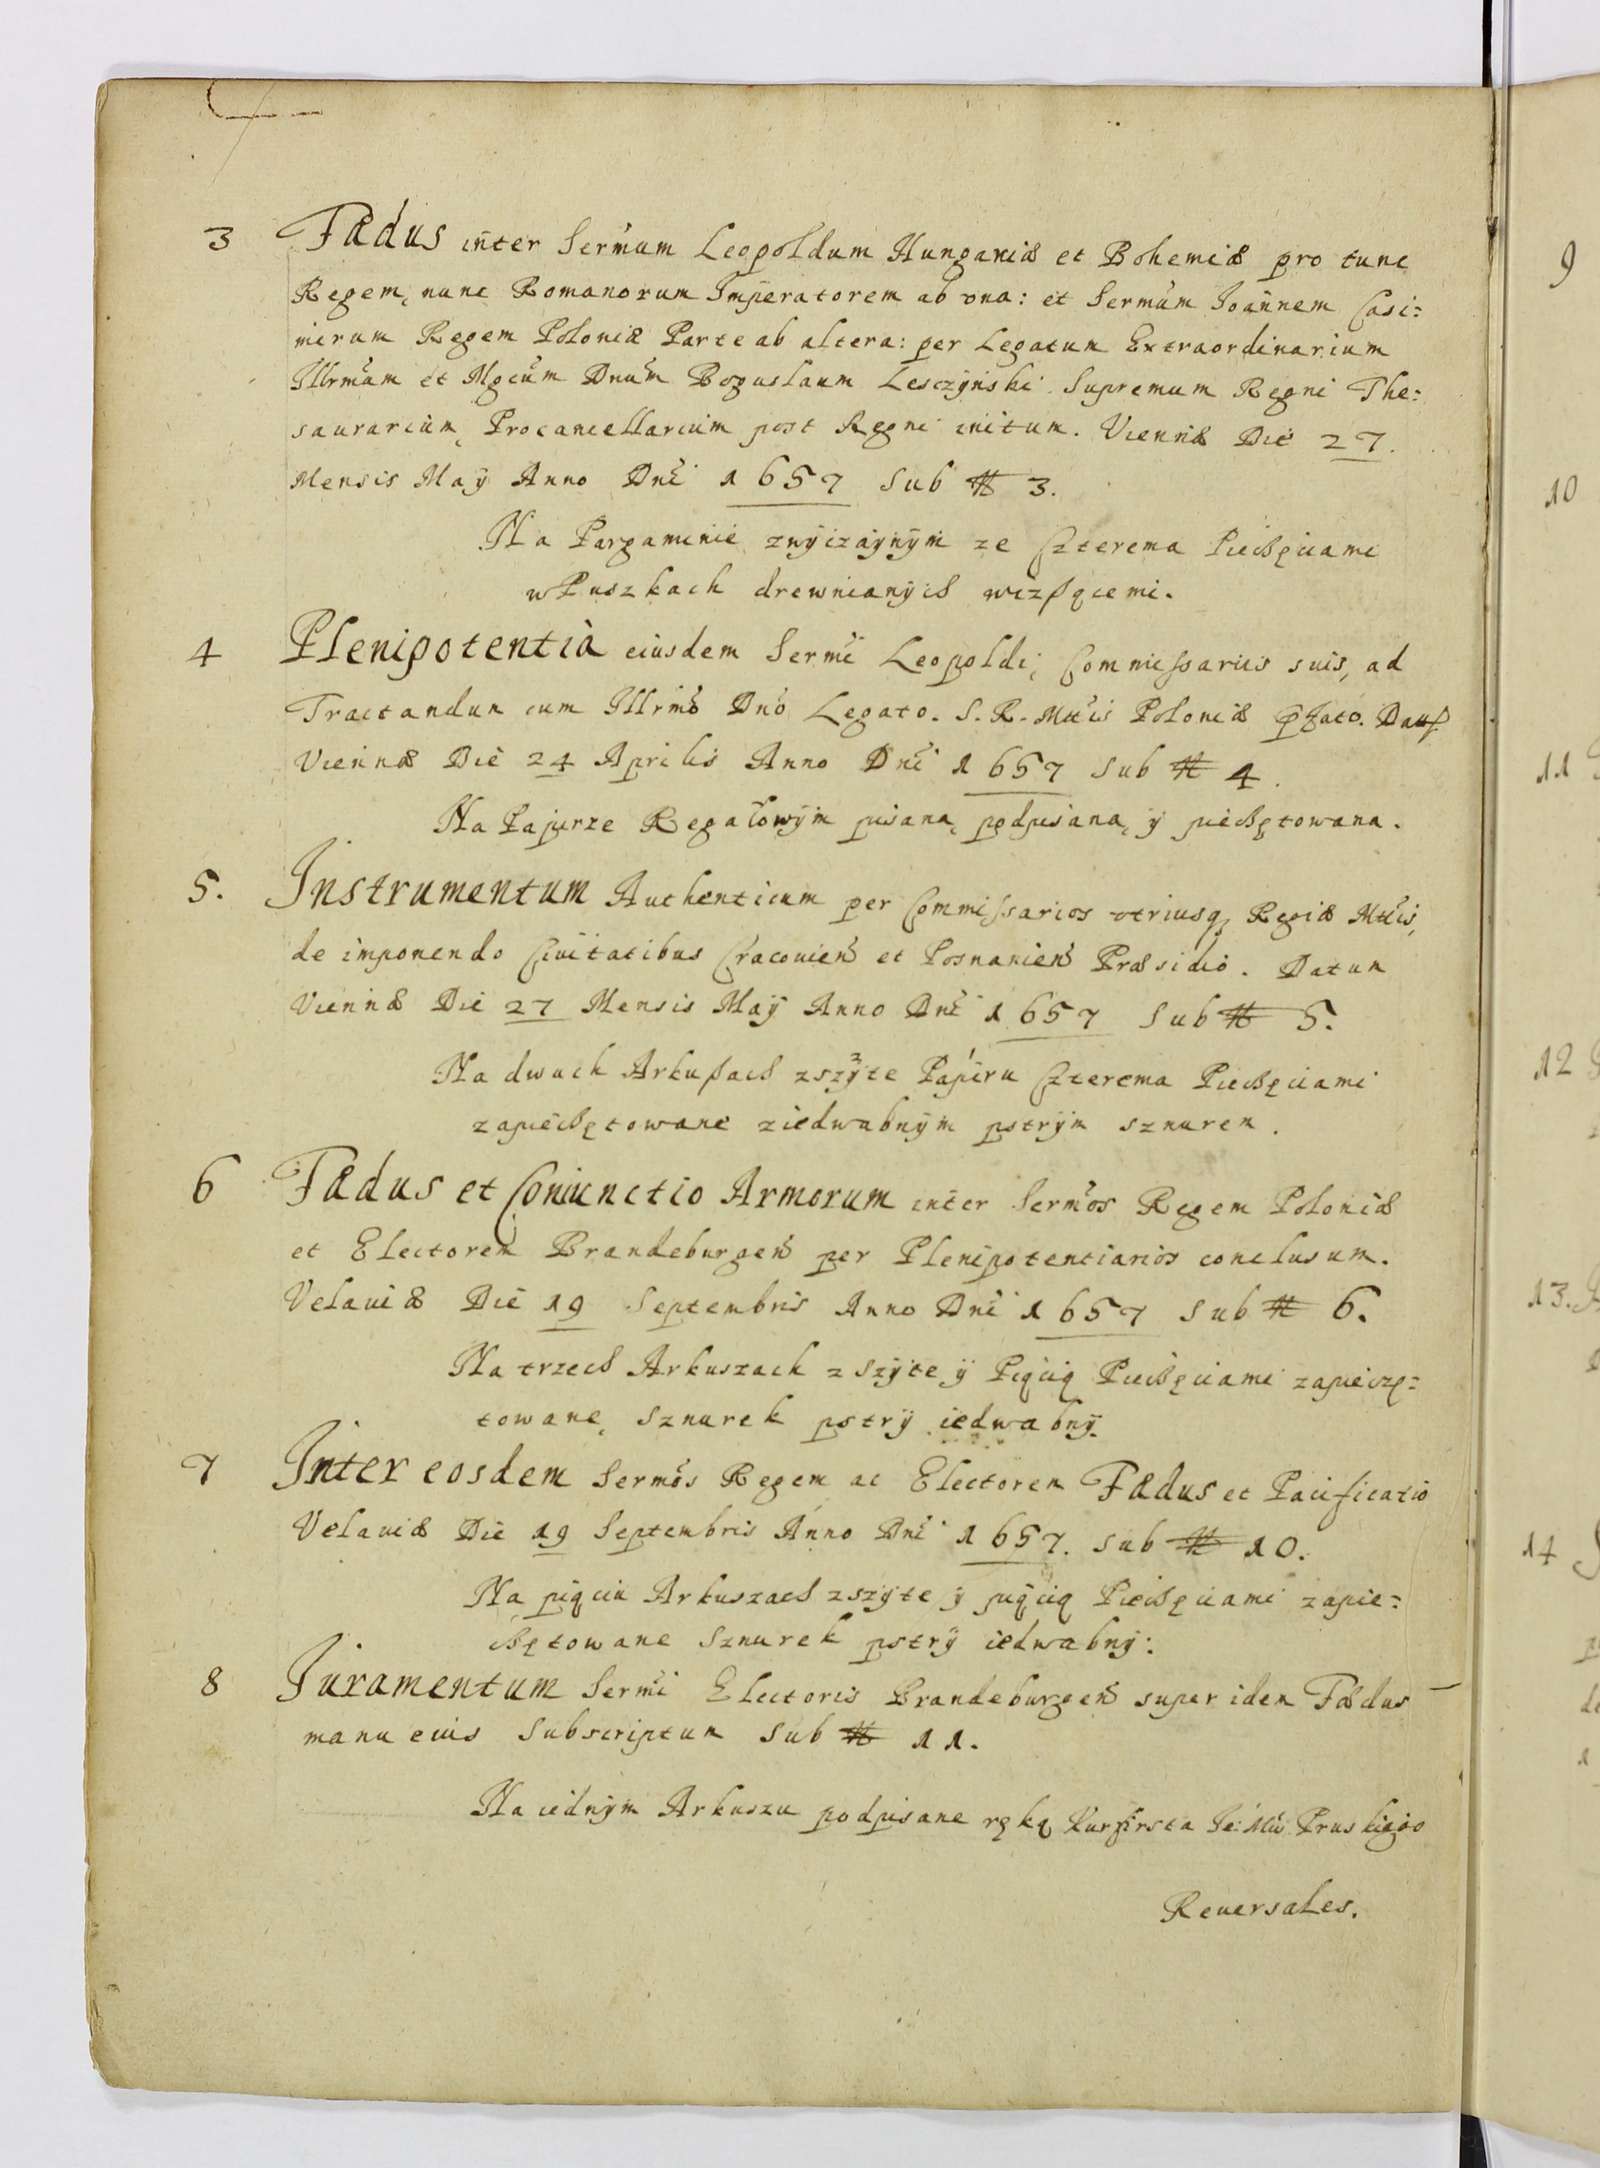 3 Fædus inter Sermum Leopoldum Hungariæ et Bohemiæ pro tunc
Regem, nunc Romanorum Imperatorem ab vna: et Sermum Joannem Casi:
mirum Regem Poloniæ Parte ab altera: per Legatum Extraordinarium
Illrmum et Mgcum Dnum Boguslaum Lesczÿnski Supremum Regni The:
saurarium, Procancellarium post Regni initum. Viennæ Die 27.
Mensis Maÿ Anno Dni 1657 Sub № 3.
Na Pargaminie zwÿczaÿnÿm ze Czterema Pieczęciami
w Puszkach drewnianÿch wiszącemi.
4 Plenipotentia eiusdem Sermi Leopoldi, Commissariis suis, ad
Tractandum cum Illrmo Dno Legato. S. R. Mttis Poloniæ Datß
Viennæ Die 24 Aprilis Anno Dni 1657 Sub № 4.
Na Papierze Regałowÿm pisana, podpisana, ÿ pieczętowana.
5. Instrumentum Authenticum per Commissarios vtriusq Regiæ Mttis,
de imponendo Ciuitatibus Cracouien et Posnanien Præsidio. Datum
Viennæ Die 27 Mensis Maÿ Anno Dni 1657 Sub № 5.
Na dwuch Arkußach zszÿte Papieru Czterema Pieczęciami
zapieczętowane ziedwabnÿm pstrÿm sznurem.
6 Fædus et Coniunctio Armorum inter Sermos Regem Poloniæ
et Electorem Brandeburgen per Plenipotentiarios conclusum.
Velauiæ Die 19 Septembris Anno Dni 1657 Sub № 6.
Na trzech Arkuszach zszÿte ÿ Piącią Pieczęciami zapieczę:
towane, sznurek pstrÿ iedwabnÿ.
7 Inter eosdem Sermos Regem ac Electorem Fædus et Pacificatio
Velauiæ Die 19 Septembris Anno Dni 1657. Sub № 10.
Na piąciu Arkuszach zszÿte ÿ piącią Pieczęciami zapie:
czętowane Sznurek pstrÿ iedwabnÿ:
8 Iuramentum Sermi Electoris Brandeburgen super idem Fædus
manu eius Subscriptum Sub № 11.
Na iednÿm Arkuszu podpisane ręką Kurfirsta Je: Mci Pruskiego
Reuersales.
9
10
11
12
13.
14